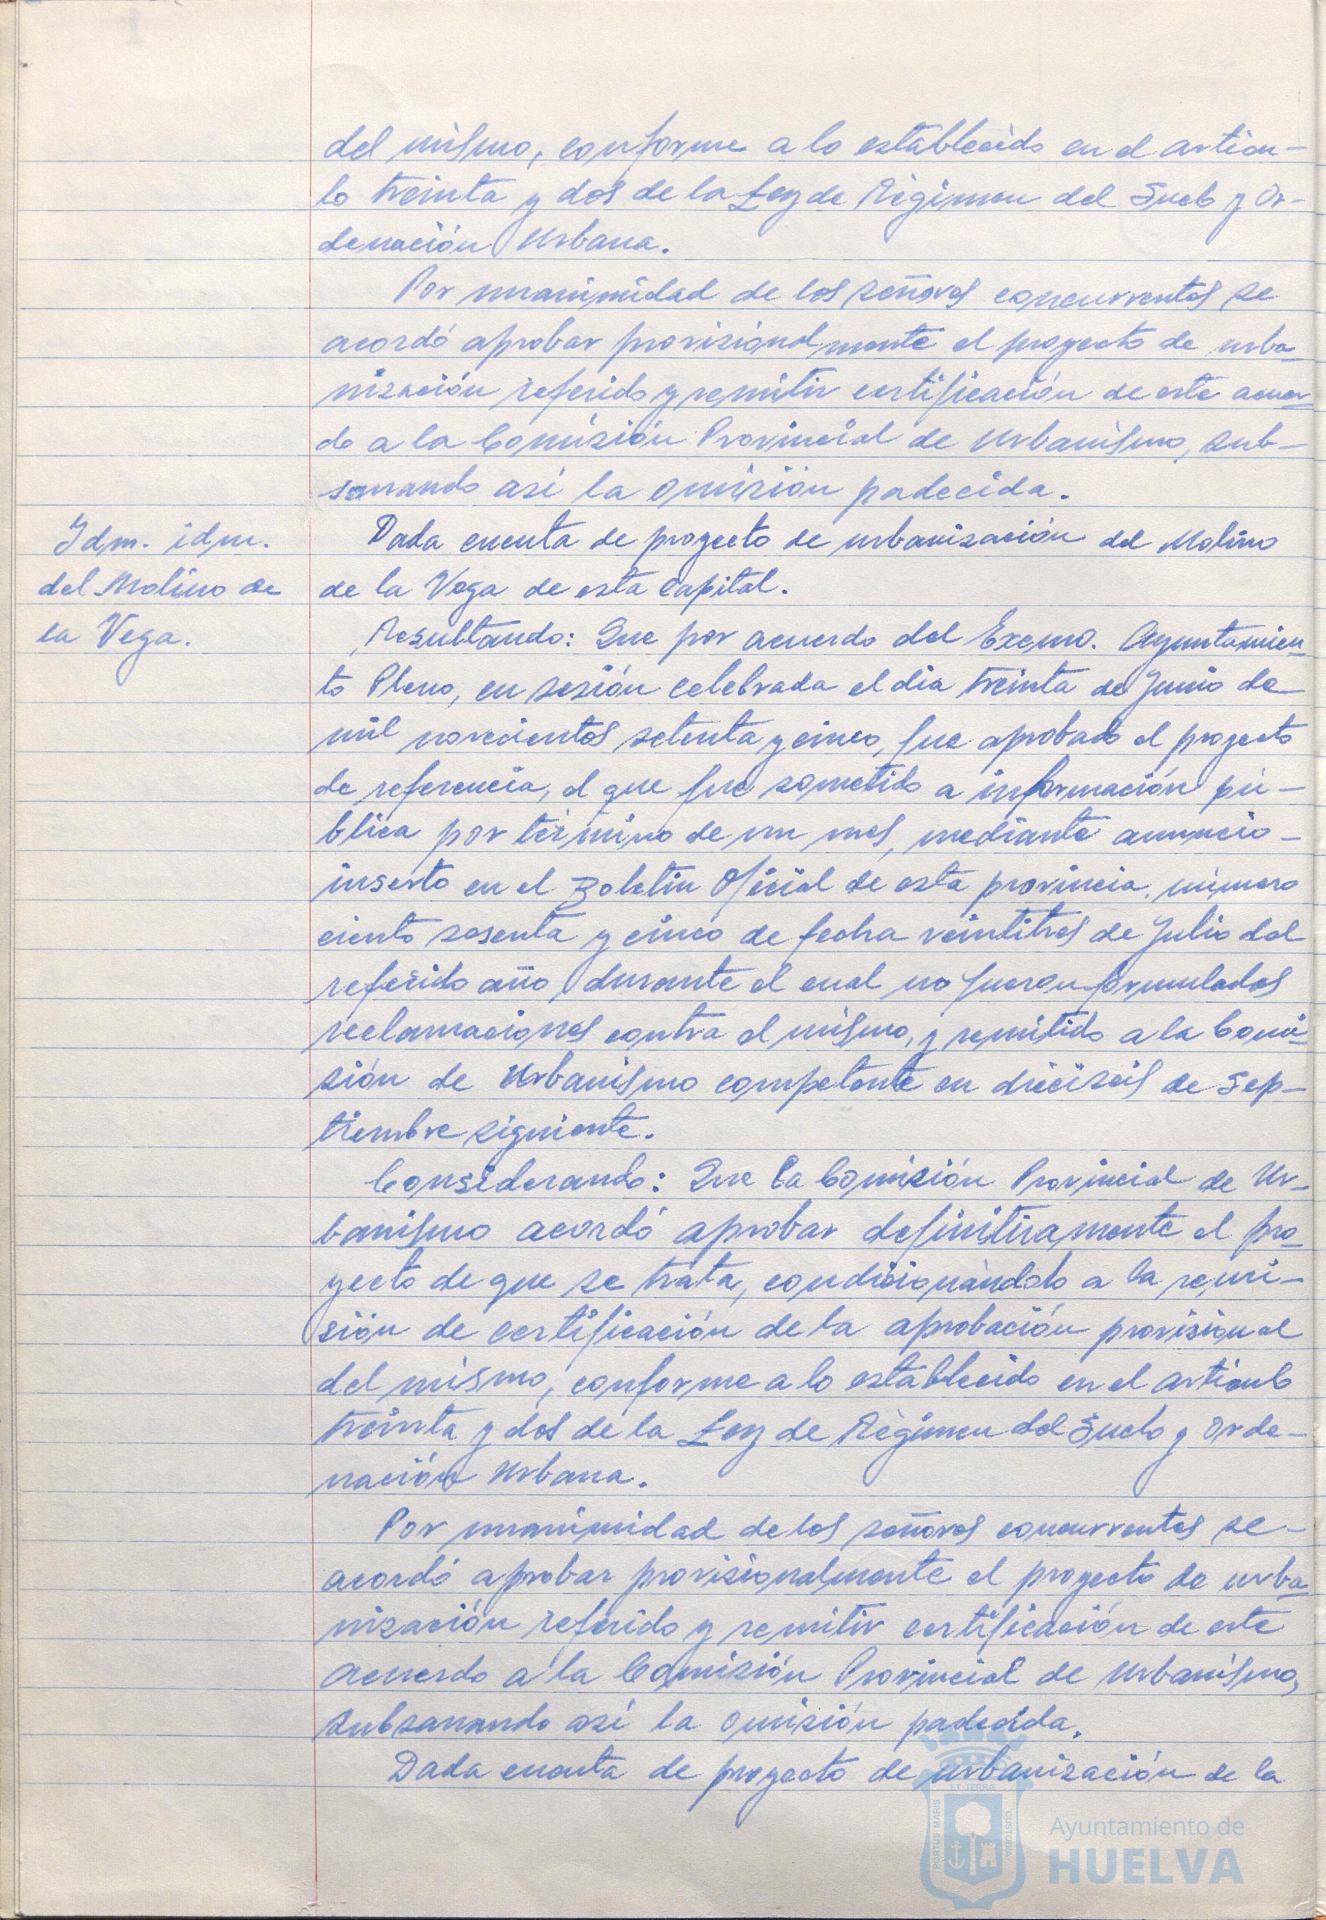 del mismo, conforme a lo establecido en el artícu-
lo treinta y dos de la Ley de Régimen del Suelo y Or-
denación Urbana.
Por unanimidad de los señores concurrentes se
acordó aprobar provisionalmente el proyecto de urba-
nización referido y remitir certificación de este acuer-
do a la Comisión Provincial de Urbanismo, sub-
sanando así la omisión padecida.
Idm. idm.
del Molino de
la Vega.
Dada cuenta de proyecto de urbanización del Molino
de la Vega de esta capital.
Resultando: Que por acuerdo del Excmo. Ayuntamien-
to Pleno, en sesión celebrada el día treinta de Junio de
mil novecientos setenta y cinco, fue aprobado el proyecto
de referencia, el que fue sometido a información pú-
blica por término de un mes, mediante anuncio-
inserto en el Boletín Oficial de esta provincia, número
ciento sesenta y cinco de fecha veintitres de Julio del
referido año, durante el cual no fueron formulados
reclamaciones contra el mismo, y remitido a la Comi-
sión de Urbanismo competente en dieciseis de Sep-
tiembre siguiente.
Considerando: Que la Comisión Provincial de Ur-
banismo acordó aprobar definitivamente el pro-
yecto de que se trata, condicionándolo a la remi-
sión de certificación de la aprobación provisional
del mismo, conforme a lo establecido en el artículo
treinta y dos de la Ley de Régimen del Suelo y Orde-
nación Urbana.
Por unanimidad de los señores concurrentes se-
acordó aprobar provisionalmente el proyecto de urba-
nización referido y remitir certificación de este
acuerdo a la Comisión Provincial de Urbanismo,
subsanando así la omisión padecida.
Dada cuenta de proyecto de urbanización de la
PORTUS MARIS ET TERRAE CUSTODIA
Ayuntamiento de
HUELVA